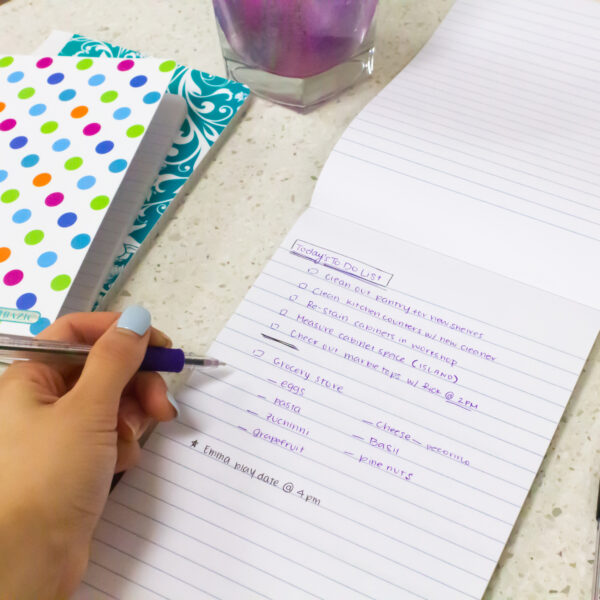 Today's To Do List
☐ Clean out pantry for new shelves
☐ Clean kitchen counters w/ new cleaner
☐ Re-stain cabinets in workshop
☐ Measure cabinet space (ISLAND)
☐ Check out marble tops w/ Rick @ 2PM
☐ Grocery store
– eggs
– pasta
– zuchinni
– grapefruit
– cheese – pecorino
– Basil
– pine nuts
★ Emma play date @ 4pm